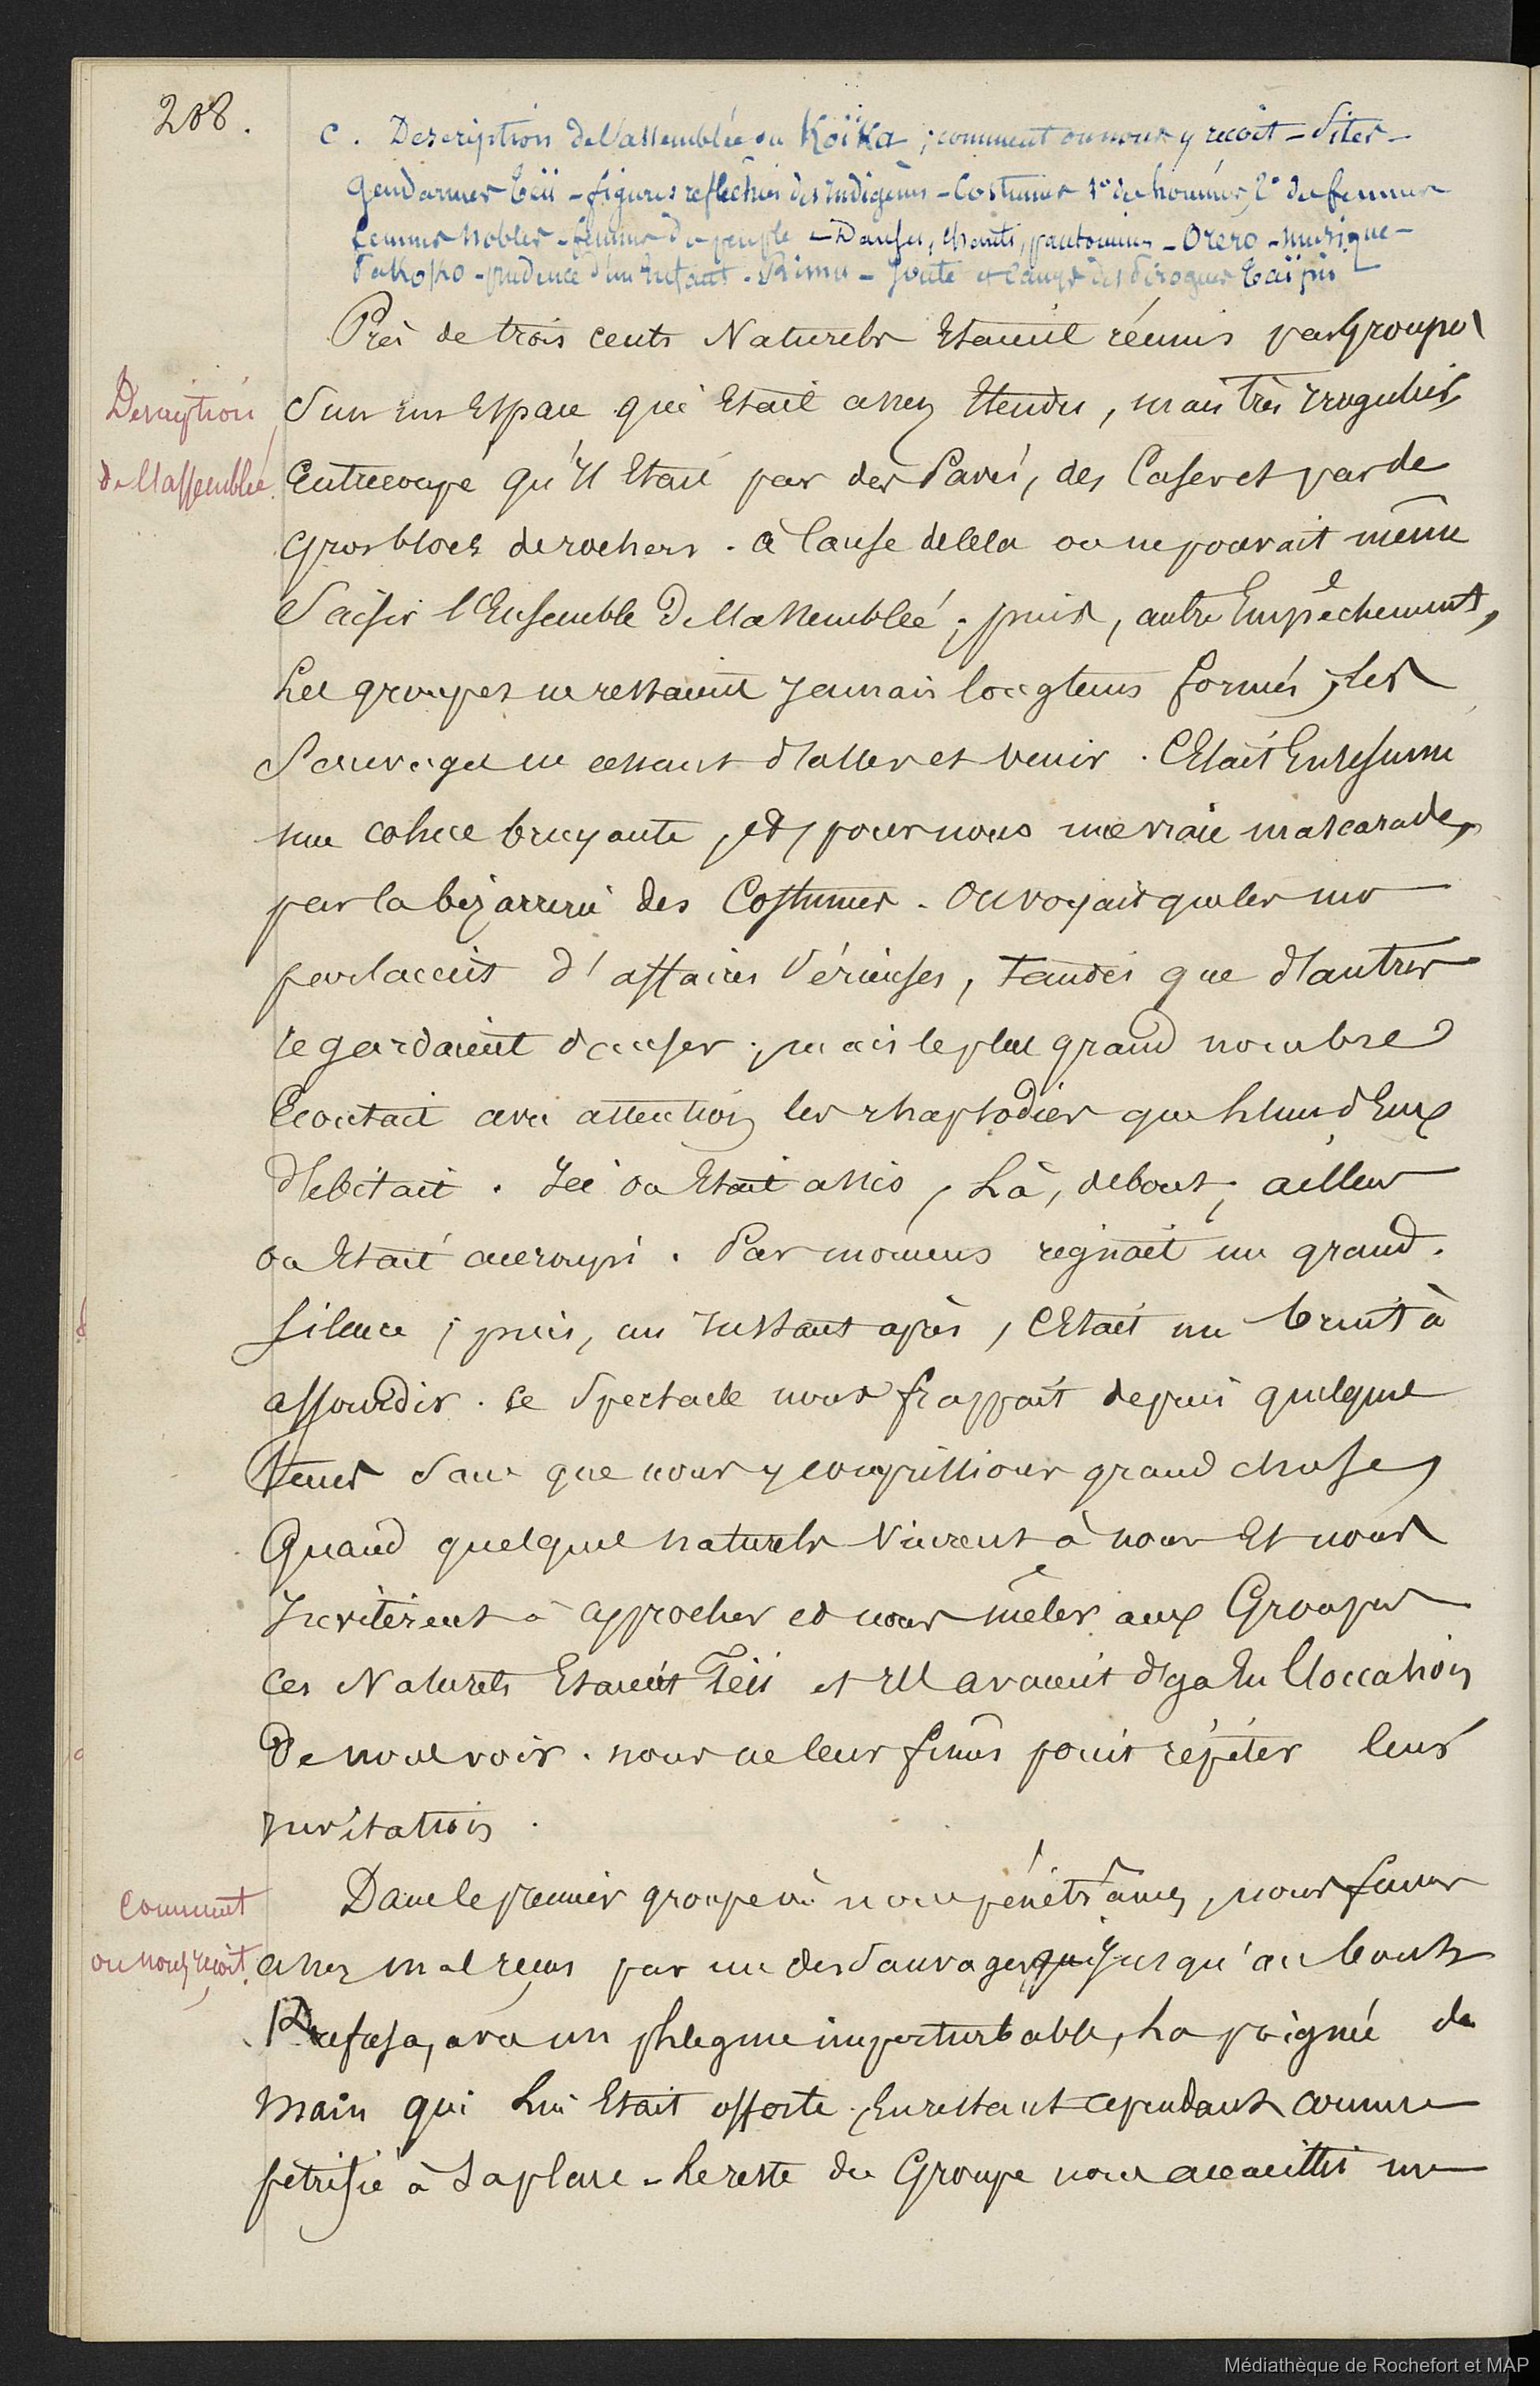 208.
c. Description de l'assemblée ou Koïka ; comment on nous y reçoit - Sites -
Gendarmes teii - figures reflechies des Indigènes - Costumes 1° des hommes, 2° des femmes
femmes nobles - femmes du peuple - Danses, chants, pantomimes - Orero - musique -
- prudence d'un Enfant - - Joute et des Pirogues Taïpis
Près de trois cents Naturels Etaient réunis par Groupes
Description
de l'assemblée.
Sur un Espace qui Etait assez Etendu, mais très irregulier
Entrecoupé qu'il Etait par des Pavés, des Cases et par de
gros blocs de rochers. à Cause de cela on ne pouvait même
Saisir l'Ensemble de l'assemblée ; puis, autre Empêchement,
Les groupes ne restaient jamais longtems formés ; les
Sauvages ne cessant d'aller et venir. C'Etait En résumé
une cohue bruyante, et, pour nous une vraie mascarade,
par la bizarrerie des Costumes. On voyait que les uns
parlaient d'affaires sérieuses, tandis que d'autres
regardaient danser ; mais le plus grand nombre
Ecoutait avec attention les rhapsodies que l'un d'Eux
débitait. Ici on Etait assis, Là, debout, ailleurs
on Etait accroupi. Par momens regnait un grand
silence ; puis, un instant après, c'Etait un bruit à
assourdir. ce Spectacle nous frappait depuis quelque
tems Sans que nous y comprissions grand chose,
Quand quelques naturels vinrent à nous Et nous
Invitèrent à approcher et nous mêler aux Groupes
Ces Naturels Etaient Teii et Ils avaient déja Eu l'occasion
De nous voir. nous ne leur fimes point répéter leur
invitation.
Comment
on nous reçoit.
Dans le premier groupe où nous pénétrâmes, nous fumes
assez mal reçus par un des Sauvages, qui jusqu'au bout
Refusa, avec un phlegme imperturbable, La poignée de
main qui Lui Etait offerte. En restant cependant comme
pétrifié à Sa place - Le reste du Groupe nous accueillit un
Médiathèque de Rochefort et MAP